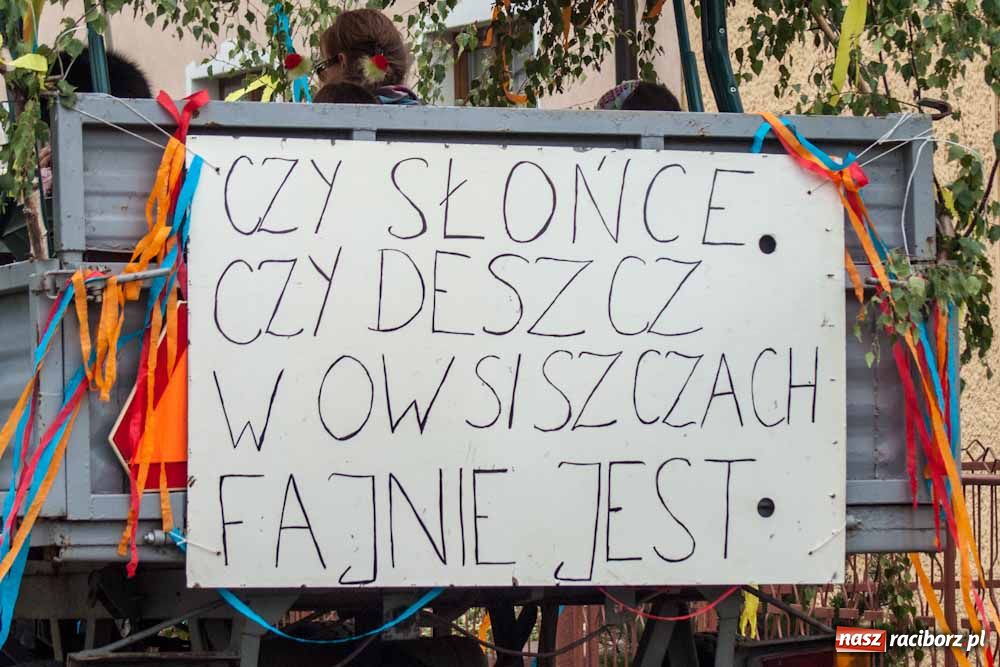 CZY SŁOŃCE
CZY DESZCZ
W OWSISZCZACH
FAJNIE JEST
nasz raciborz.pl